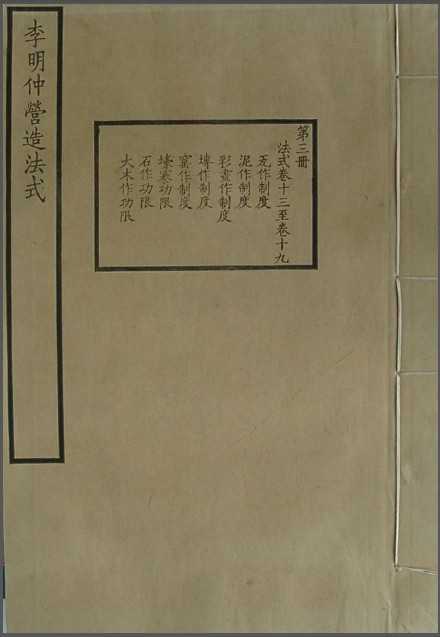 李明仲營造法式
第三冊
法式卷十三至卷十九
瓦作制度
泥作制度
彩畫作制度
塼作制度
窰作制度
壕寨功限
石作功限
大木作功限